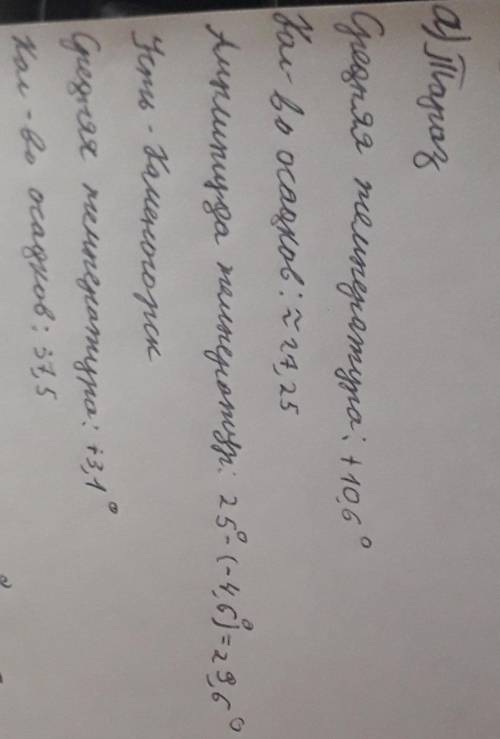 а) Тараз
Средняя температура: +10,6°
Кол-во осадков: ≈ 27,25
Амплитуда температур: 25° - (-4,6°) = 29,6°
Усть-Каменогорск
Средняя температура: +3,1°
Кол-во осадков: 37,5